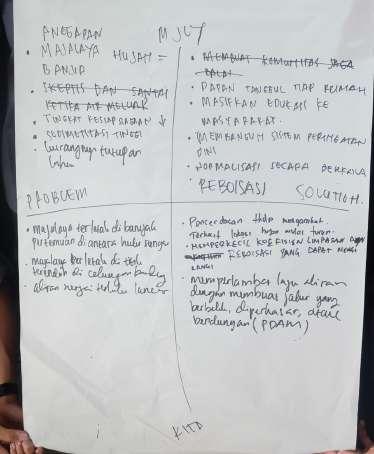 ANGGAPAN
• MAJALAYA HUJAN =
BANJIR
• SKEPTIS DAN SANTAI
KETIKA AIR MELUAP
• TINGKAT KESIAPSIAGAAN ↓
• SEDIMENTASI TINGGI
• kurangnya tutupan
lahan
PROBLEM
• MEMBUAT KOMUNITAS JAGA
BALAI
• PAPAN TANGGUL TIAP RUMAH
• MASIFKAN EDUKASI KE
MASYARAKAT.
• MEMBANGUN SISTEM PERINGATAN
DINI
• NORMALISASI SECARA BERKALA
• REBOISASI
SOLUTION.
• majalaya terletak di banyak
pertemuan di antara hulu sungai
• majalaya terletak di titik
terendah di cekungan bandung
• aliran sungai terlalu lancar
• Pencerdasan
Terkait lokasi hujan mulai turun.
• MEMPERKECIL KOEFISIEN LIMPASAN
REBOISASI YANG DAPAT
• memperlambat laju aliran
dengan membuat jalur yang
berbelok, diperkasar, atau
bendungan (PDAM)
KITA